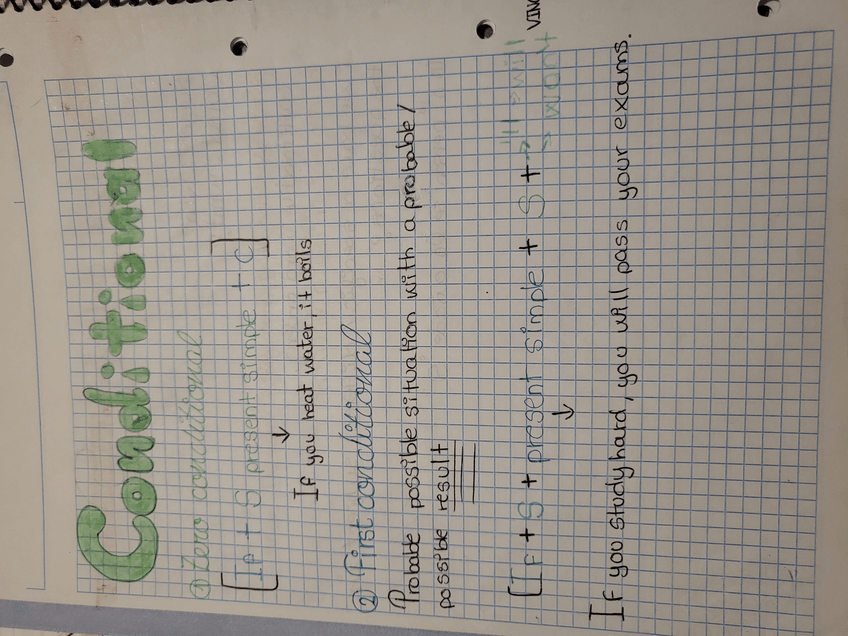 Conditional
① Zero conditional
[If + S present simple + C]
↓
If you heat water, it boils
② First conditional
Probable possible situation with a probable/
possible result
[If + S + present simple + S + will
won't
↓
If you study hard, you will pass your exams.